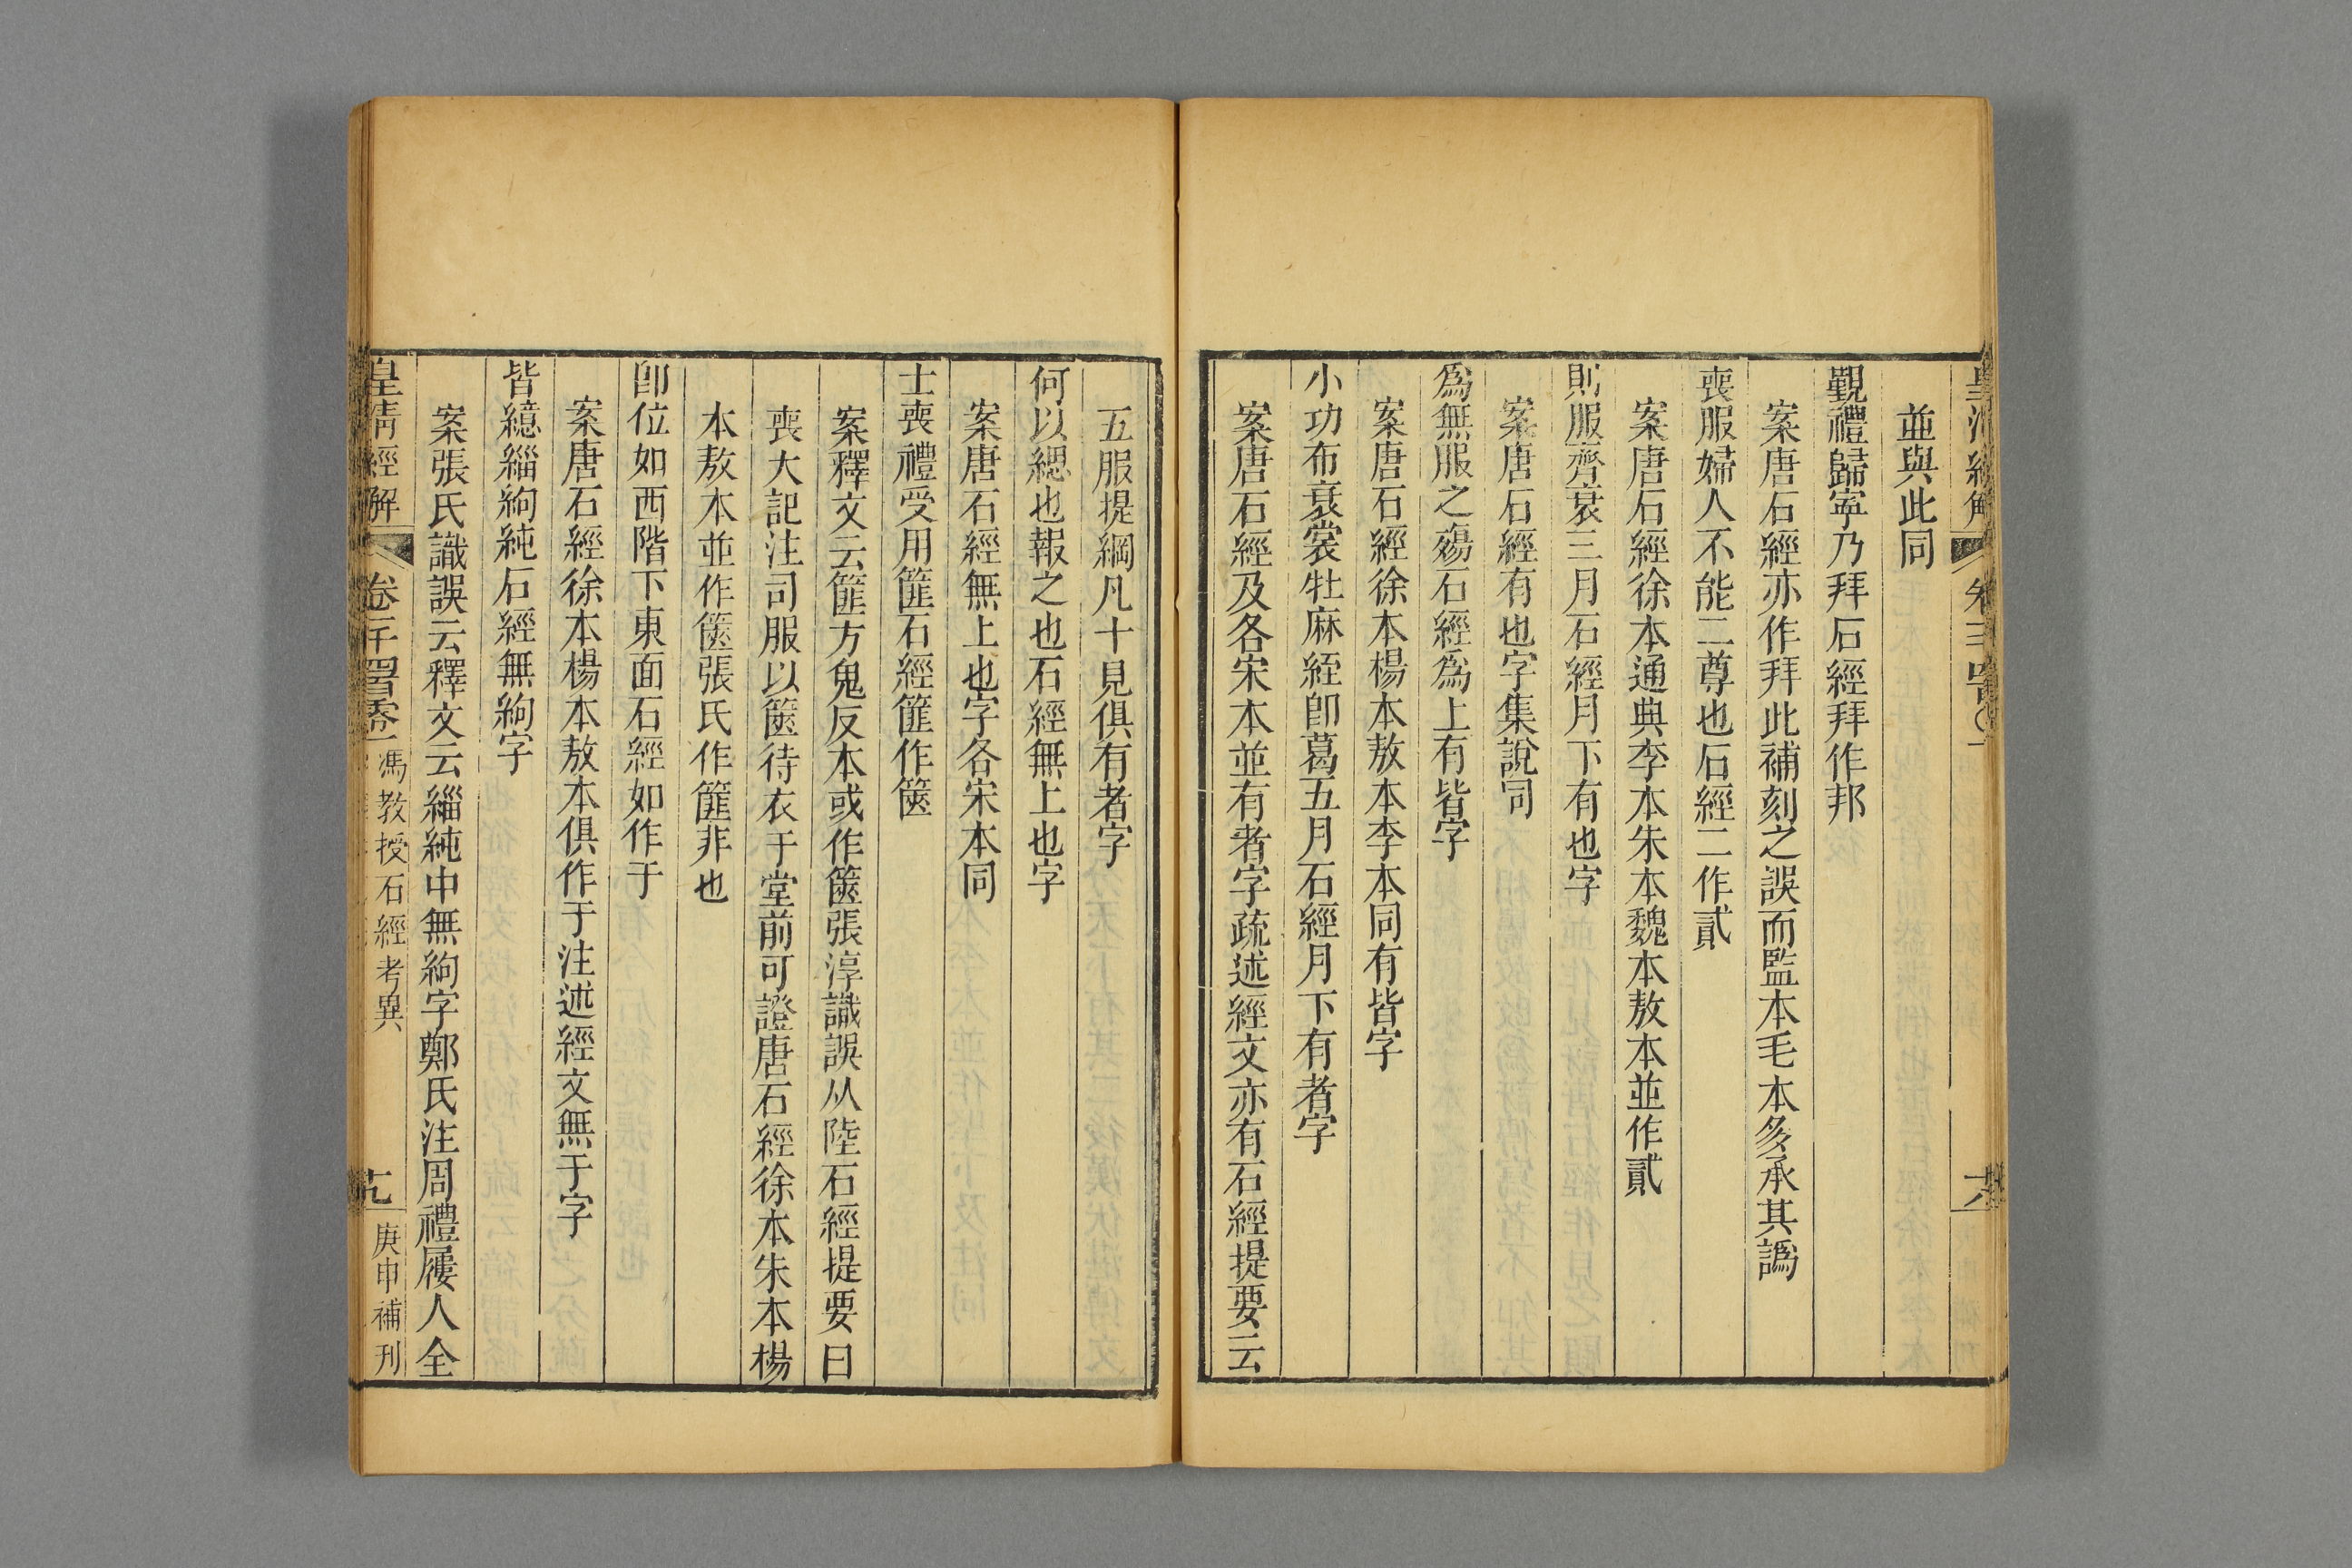 並與此同
覲禮歸寧乃拜石經拜作邦
案唐石經亦作拜此補刻之誤而監本毛本多承其譌
喪服婦人不能二尊也石經二作貳
案唐石經徐本通典李本朱本魏本敖本並作貳
則服齊衰三月石經月下有也字
案唐石經有也字集說同
爲無服之殤石經爲上有皆字
案唐石經徐本楊本敖本李本同有皆字
小功布衰裳牡麻絰卽葛五月石經月下有者字
案唐石經及各宋本並有者字疏述經文亦有石經提要云
五服提綱凡十見俱有者字
何以緦也報之也石經無上也字
案唐石經無上也字各宋本同
士喪禮受用篚石經篚作篋
案釋文云篚方鬼反本或作篋張淳識誤从陸石經提要曰
喪大記注司服以篋待衣于堂前可證唐石經徐本朱本楊
本敖本並作篋張氏作篚非也
卽位如西階下東面石經如作于
案唐石經徐本楊本敖本俱作于注述經文無于字
皆繶緇絇純石經無絇字
案張氏識誤云釋文云緇純中無絇字鄭氏注周禮屨人全
皇清經解
卷一千四百零一
馮教授石經考異
庚申補刊